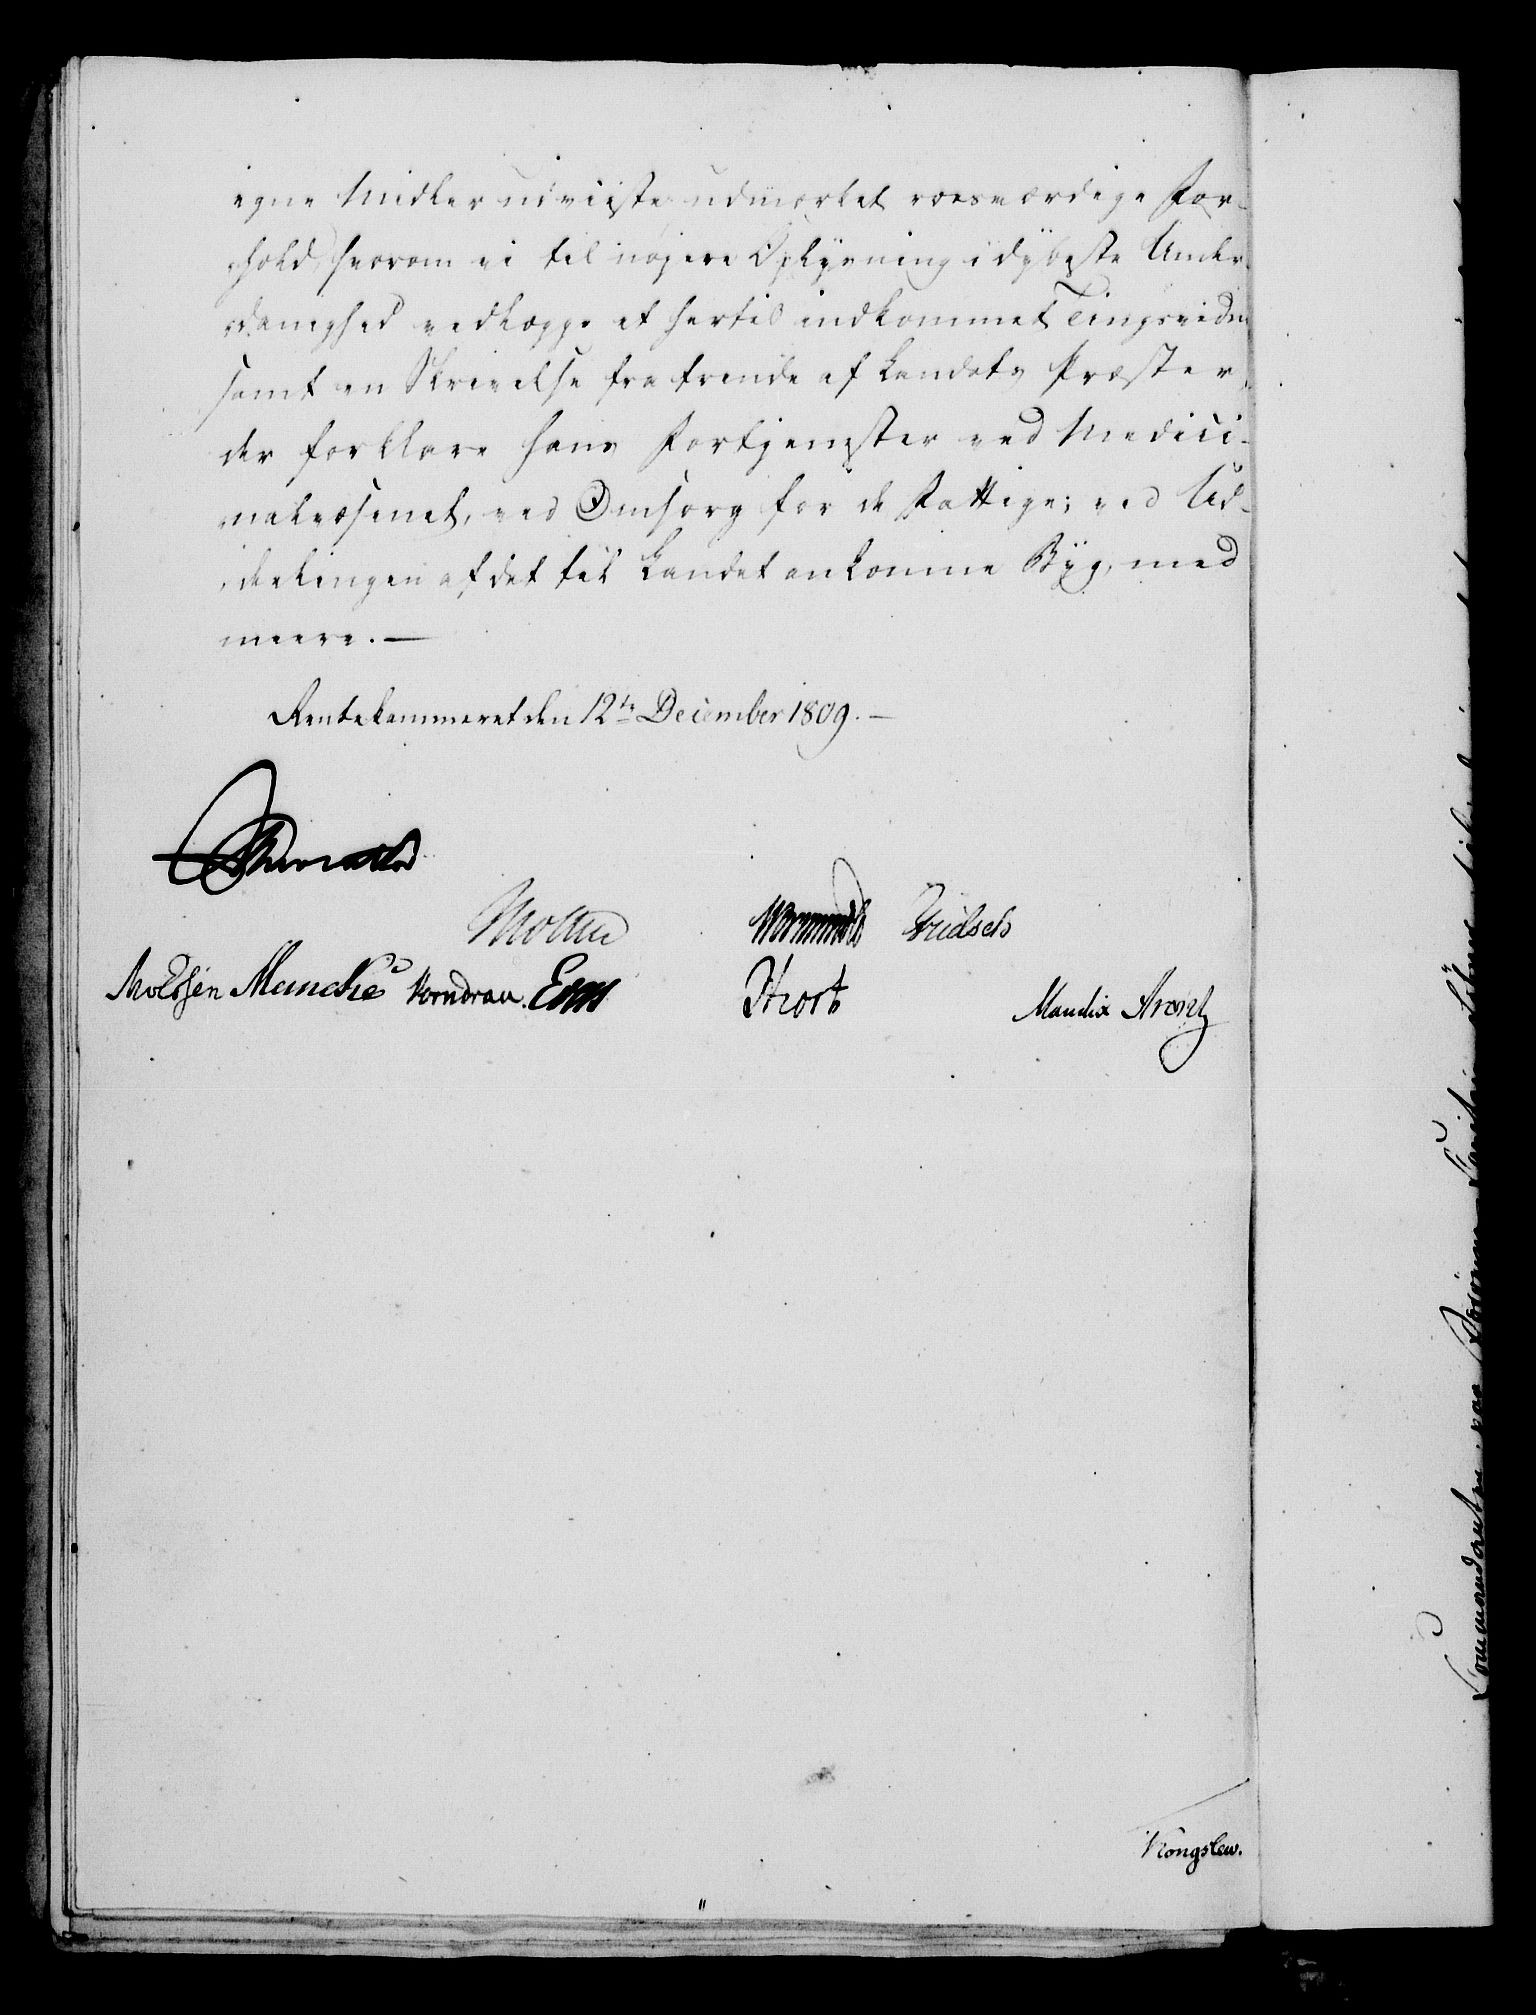 egne Midler udviiste udmærket roesværdige For-
hold, hvorom vi til nøjere Oplysning i dybeste Under-
danighed vedlægge et hertil indkommet Tingsvidne
samt en Skrivelse fra trende af Landets Præster,
der forklare hans Fortjenester ved Medici-
nalvæsenet, ved Omsorg for de Fattige; ved Ud-
deelingen af det til Landet ankomne Byg, med
meere. —
Rentekammeret den 12te December 1809. —
Moltke
Wormskiold Fridsch
Monrad Manthey Vorndran. Hiort
Mandix Arontz
Kongslew.
Commandanten paa Færøerne